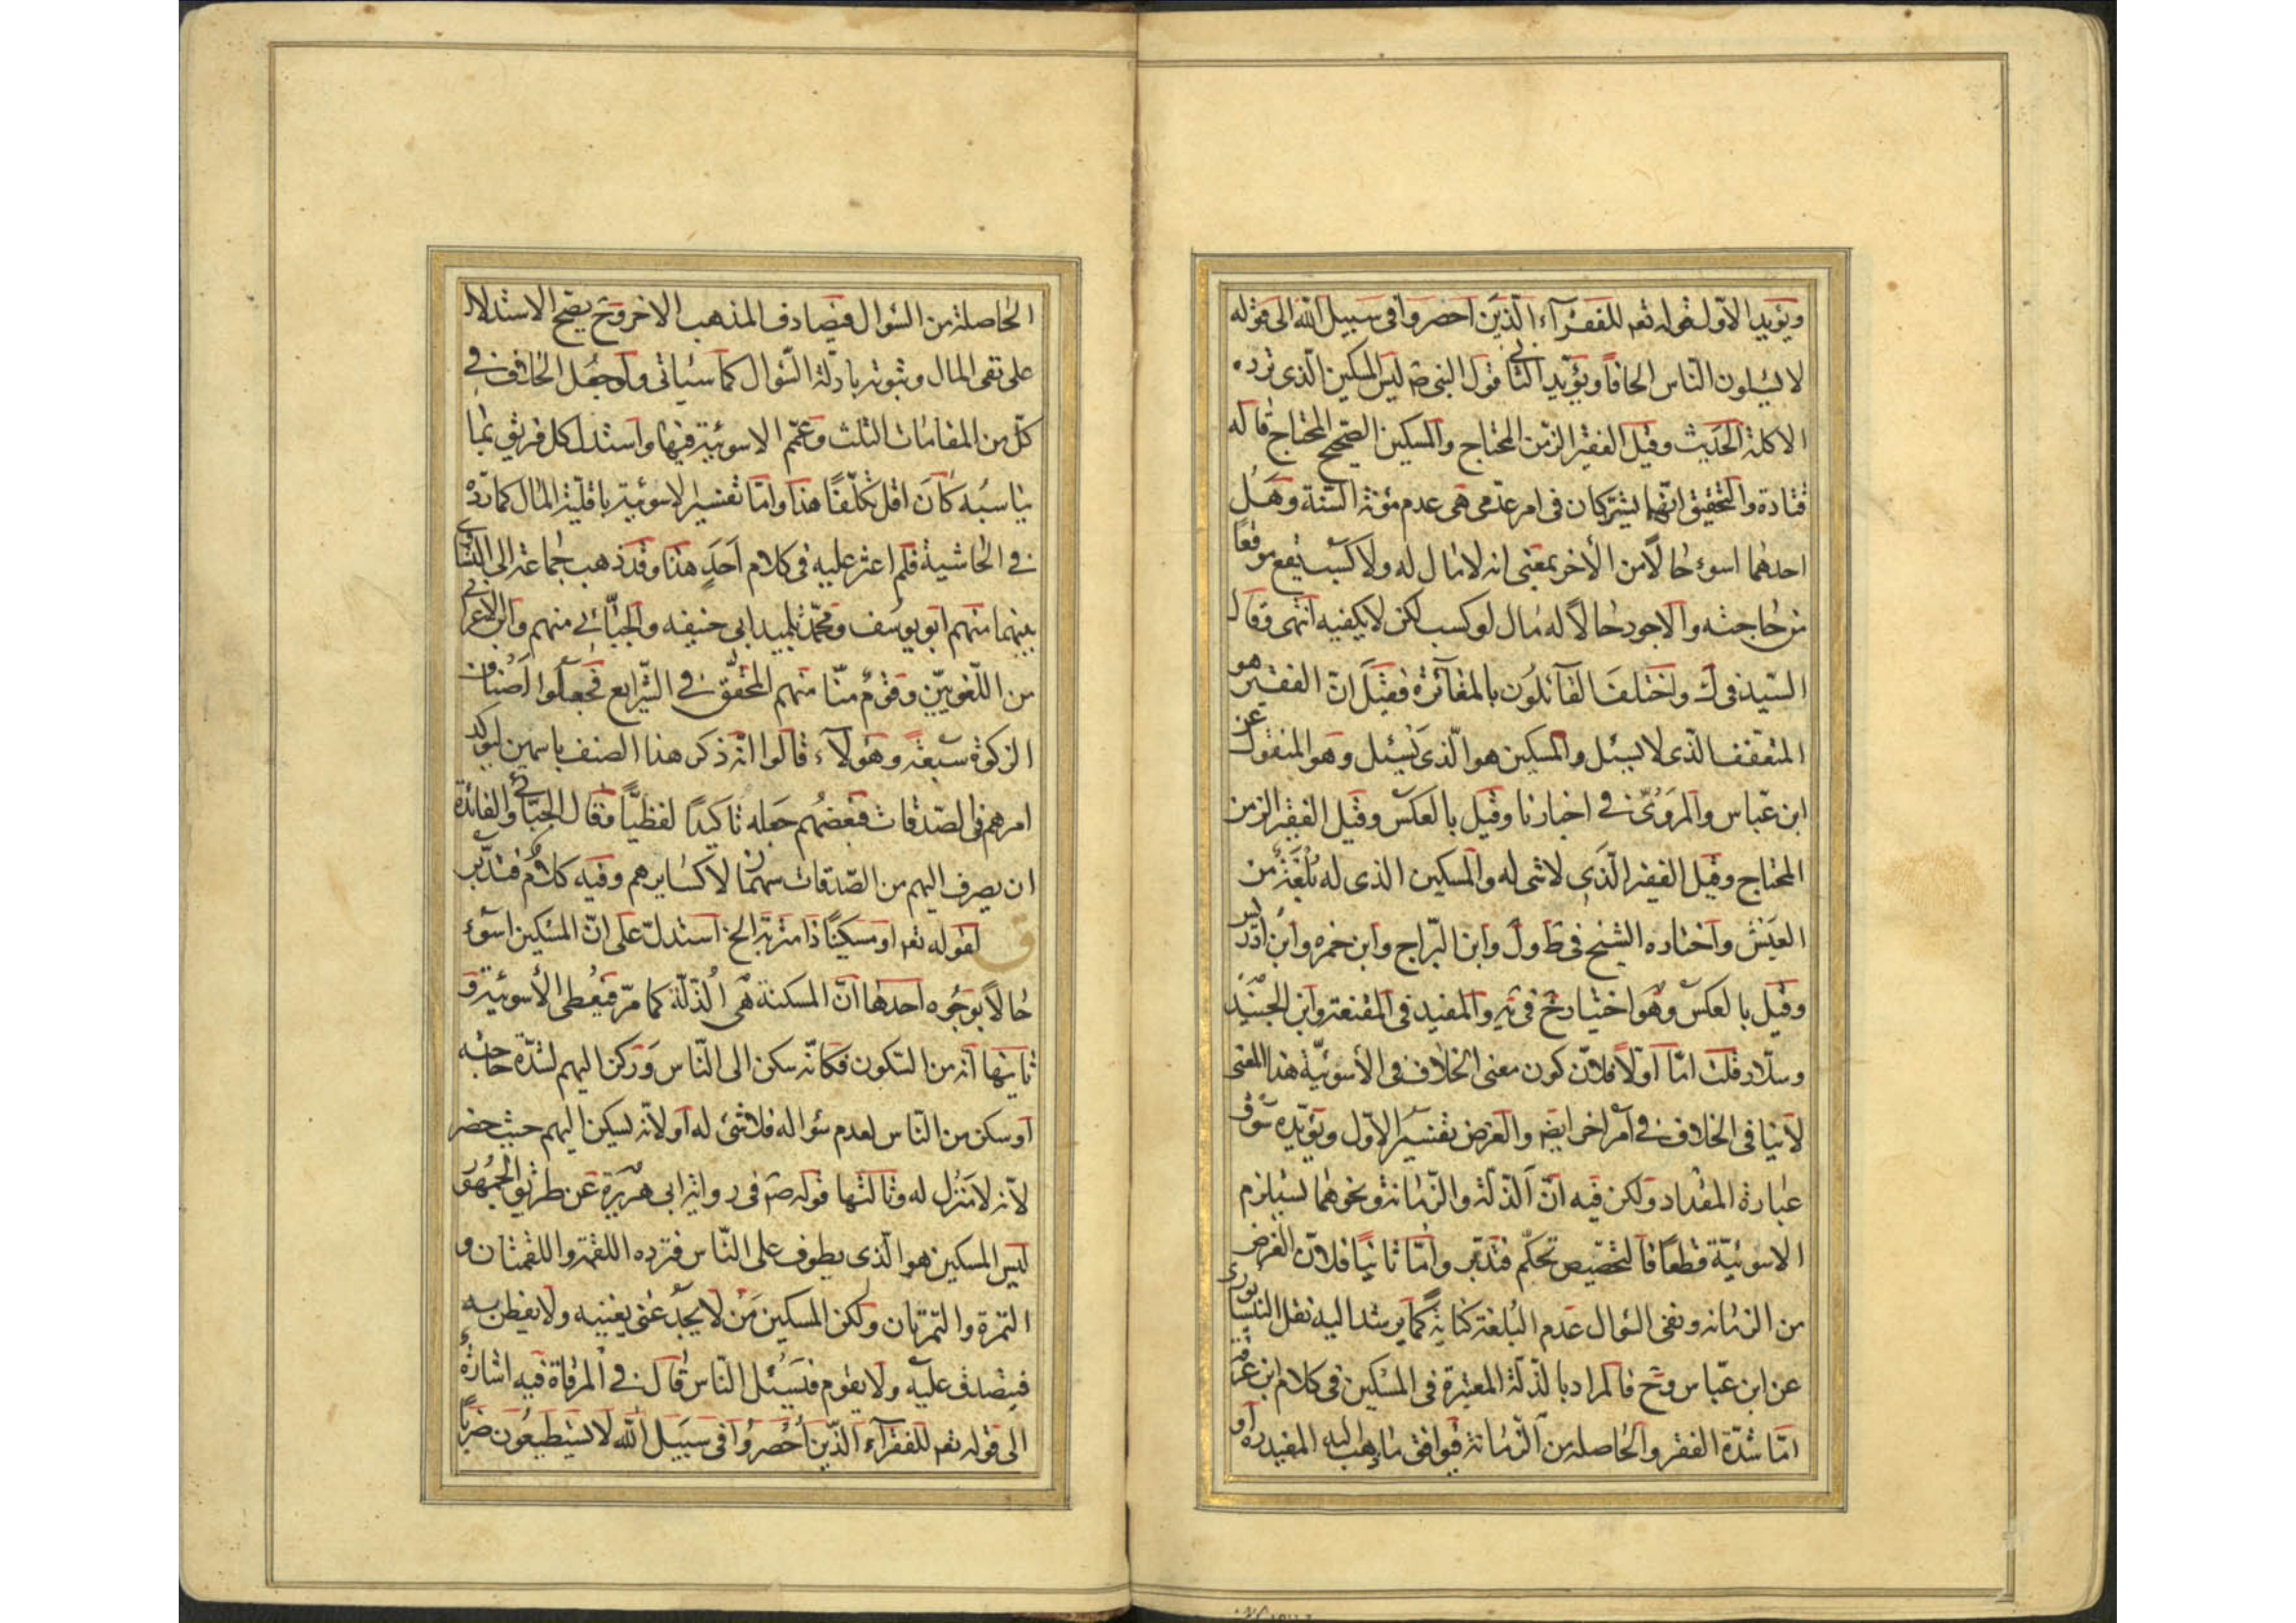 ويؤيد الاول قوله تعم للفقرآء الذين احصروا فى سبيل الله الى قوله
لا يسئلون الناس الحافاً ويؤيد الثانى قول النبى ص ليس المسكين الذى ترده
الاكلة الحديث وقيل الفقير الزمن المحتاج والمسكين الصحيح المحتاج قاله
قتادة والتحقيق انهما يشتركان فى امر عدمى هى عدم مؤنة السنة وهل
احدهما اسوء حالاً من الأخر بمعنى انه لا مال له ولا كسب يقع موقعاً
من حاجته والاجود حالاً له مال او كسب لكن لا يكفيه انتهى وقال
السيد فى ك واختلف القائلون بالمغائرة فقيل انّ الفقير هو
المتعفف الذى لا يسئل والمسكين هو الذى يسئل وهو المنقول عن
ابن عباس والمروىّ فى اخبارنا وقيل بالعكس وقيل الفقير الزمن
المحتاج وقيل الفقير الذى لا شى له والمسكين الذى له بُلْغَة من
العيش واختاره الشيخ فى ط ول وابن البراج وابن حمزه وابن ادريس
وقيل بالعكس وهو اختيار خ فى يه والمفيد فى المقنعة وابن الجنيد
وسلار قلت امّا اولاً فلانّ كون معنى الخلاف فى الأسوئيّة هذا المعنى
لا ينافى الخلاف فى امر اخر ايضا والغرض تفسير الاول ويؤيده سوق
عبارة المقداد ولكن فيه انّ الذلة والزمانة ونحوهما يستلزم
الاسوئيّة قطعاً فالتخصيص تحكّم فتدبر وامّا ثانياً فلانّ الغرض
من الزمانه ونفى السؤال عدم البُلغة كناية كما يرشد اليه نقل النيسابورى
عن ابن عباس وح فالمراد بالذلة المعتبرة فى المسكين فى كلام ابن عرفة
امّا شدّة الفقر والحاصلة من الزمانة فيوافق ما ذهب اليه المفيد ره او
الحاصلة من السؤال فيصادف المذهب الاخر وح يصح الاستدلال
على نفى المال وثبوته بادلة السؤال كما سيأتى ولو جعل الخلاف فى
كلّ من المقامات الثلث وعمّم الاسوئية فيها واستدل كل فريق بما
يناسبه كان اقل تكلّفاً هذا وامّا تفسير الاسوئية باقليّة المال كما تره
فى الحاشية فلم اعثر عليه فى كلام احد هذا وقد ذهب جماعة الى التساوى
بينهما منهم ابو يوسف ومحمد تلميذ ابى حنيفه والجبّائى منهم وابن الاعرابى
من اللغويّين وقوم منّا منهم المحقق فى الشرايع فجعلوا اصناف
الزكوة سبعة وهؤلآء قالوا انه ذكر هذا الصنف باسمين ليؤكد
امرهم فى الصدقات فبعضهم جعله تاكيداً لفظيّاً وقال الجبّائى والفائدة
ان يصرف اليهم من الصدقات سهمان لا كسايرهم وفيه كلام فتدبر
ق لقوله تعم او مسكيناً ذا متربة الخ استدلّ على انّ المسكين اسوء
حالاً بوجوه احدها انّ المسكنة هى الذلّة كما مرّ فيعطى الأسوئية و
ثانيها انه من السكون فكانّه سكن الى الناس وركن اليهم لشدّة حاجته
او سكن من الناس لعدم سؤاله فلا شئ له او لانه يسكن اليهم حيث حضر
لانه لا منزل له وثالثها قوله ص فى رواية ابى هريرة عن طريق الجمهور
ليس المسكين هو الذى يطوف على الناس فترده اللقمة واللقمتان و
التمرة والتمرتان ولكن المسكين من لا يجد غنى يغنيه ولا يفطن به
فيتصدق عليه ولا يقوم فيسئل الناس قال فى المرقاة فيه اشارة
الى قوله تعم للفقرآء الذين اُحصروا فى سبيل الله لا يستطيعون ضرباً